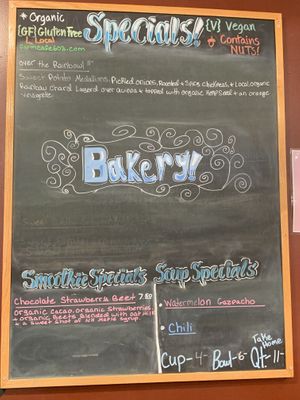 * Organic
[GF] Gluten Free
L Local
farmcafebox.com
Specials!
{V} Vegan
Contains
NUTS!
over the Rainbow! 11
Sweet Potato Medallions, Pickled onions, Roasted & Spicy chickpeas, & Local, organic
Rainbow chard Layered over quinoa & topped with organic Hemp Seed & an orange
vinaigrette
Bakery!
Smoothie Specials
Chocolate Strawberry Beet 7.50
Organic Cacao, Organic Strawberries
+ Organic Beets Blended with oat Milk
& a sweet Shot of NH Maple Syrup.
Soup Specials
Watermelon Gazpacho
Chili
Cup -4- Bowl -6- Qt. -11-
Take
Home